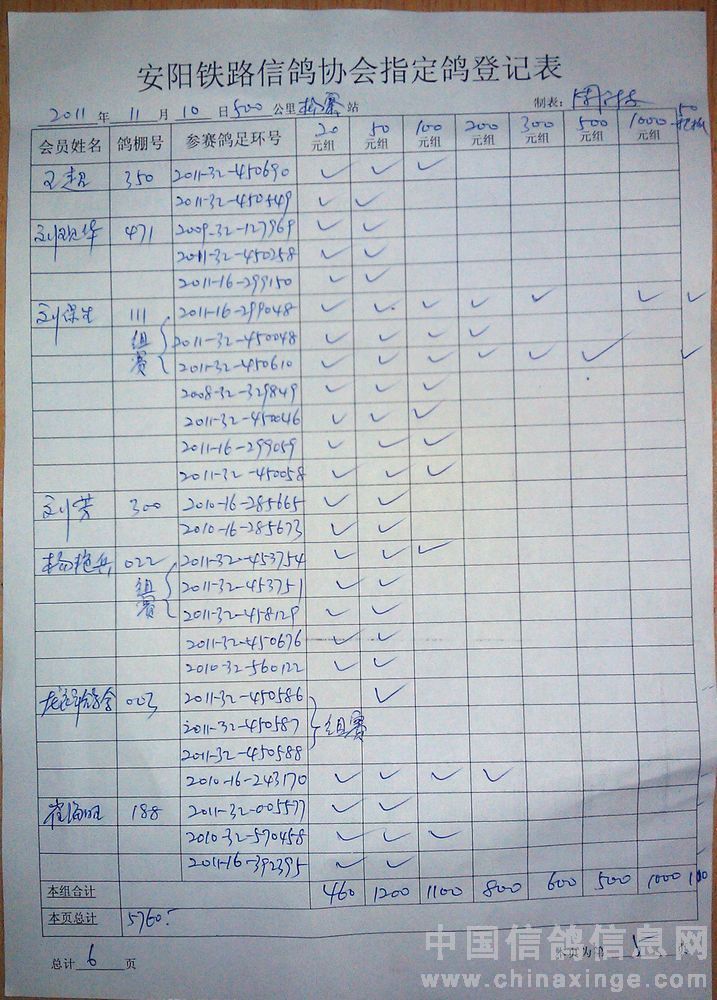 安阳铁路信鸽协会指定鸽登记表
2011 年 11 月 10 日 500 公里 检寨 站 制表:
会员姓名 鸽棚号 参赛鸽足环号 20元组 50元组 100元组 200元组 300元组 500元组 1000 50
王超 350 2011-32-450690 ✓ ✓ ✓
2011-32-450549 ✓ ✓
刘现华 471 2009-32-127969 ✓ ✓
2011-32-450258 ✓ ✓
2011-16-299150 ✓ ✓
刘保生 111 2011-16-299048 ✓ ✓ ✓ ✓ ✓ ✓ ✓
组赛 2011-32-450048 ✓ ✓ ✓ ✓
2011-32-450610 ✓ ✓ ✓ ✓ ✓ ✓ ✓
2008-32-329849 ✓ ✓ ✓
2011-32-450046 ✓ ✓ ✓
2011-16-299059 ✓ ✓ ✓
2011-32-450058 ✓ ✓ ✓
刘芳 300 2010-16-285665 ✓ ✓
2010-16-285673 ✓ ✓
兵 022 2011-32-453754 ✓ ✓ ✓
组赛 2011-32-453751 ✓ ✓
2011-32-458129 ✓ ✓
2011-32-450676 ✓ ✓
2010-32-560122 ✓ ✓
003 2011-32-450586 ✓
2011-32-450587 组赛
2011-32-450588
2010-16-243170 ✓ ✓ ✓ ✓
崔海旺 188 2011-32-005577 ✓ ✓
2010-32-570458 ✓ ✓ ✓
2011-16-392395 ✓ ✓
本组合计 460 1200 1100 800 600 500 1000 100
本页总计 5760
总计 6 页 本页为第 5 页
中国信鸽信息网
www.chinaxinge.com